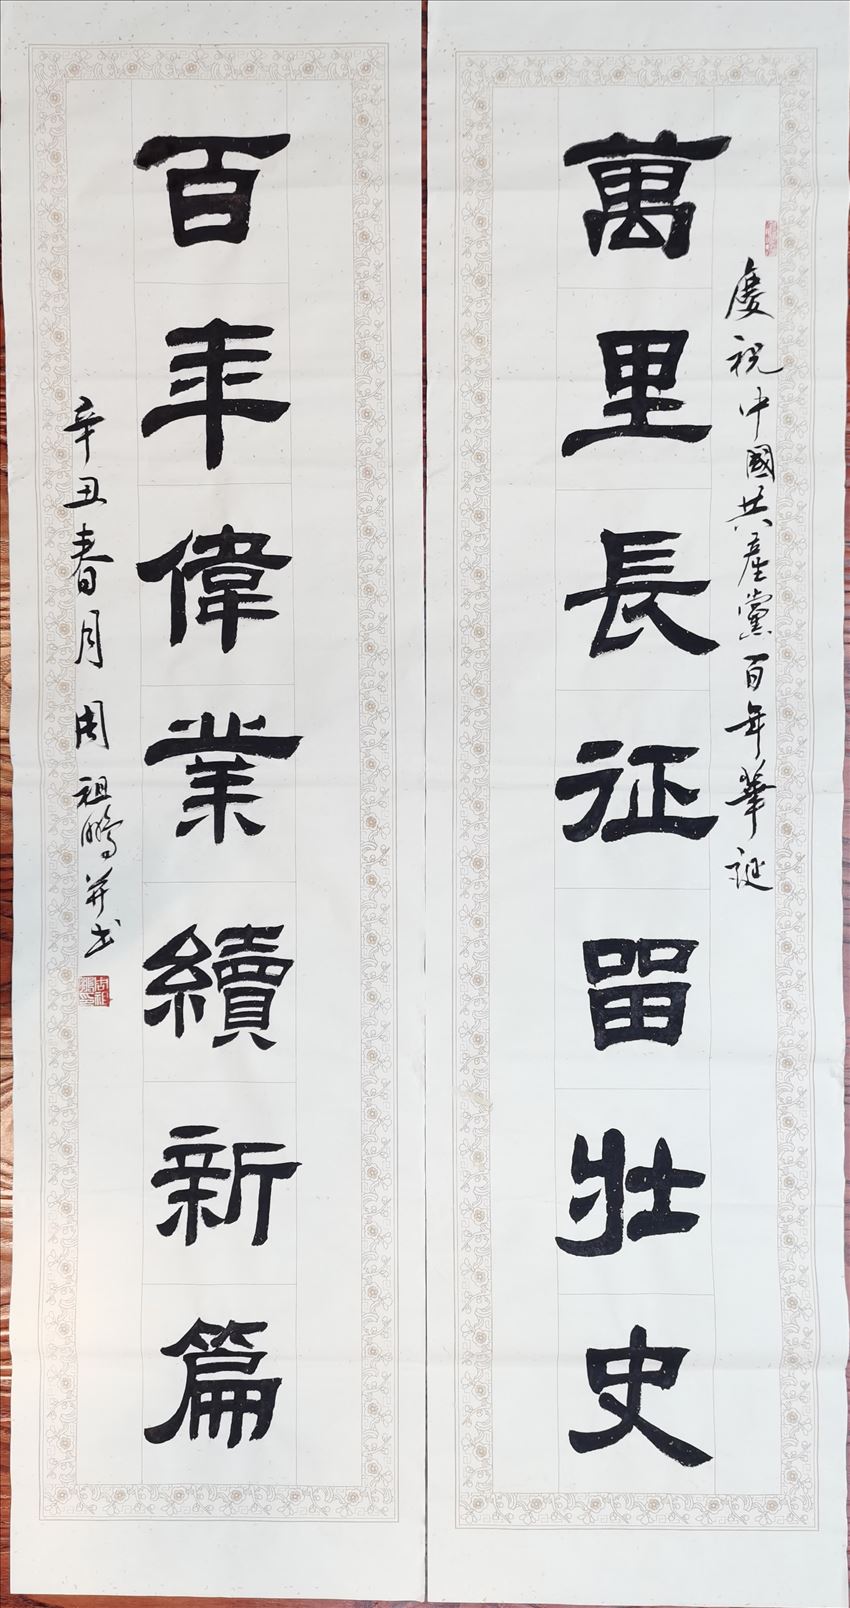 慶祝中國共產黨百年華誕
萬里長征留壯史
百年偉業續新篇
辛丑春月周祖鵬并书